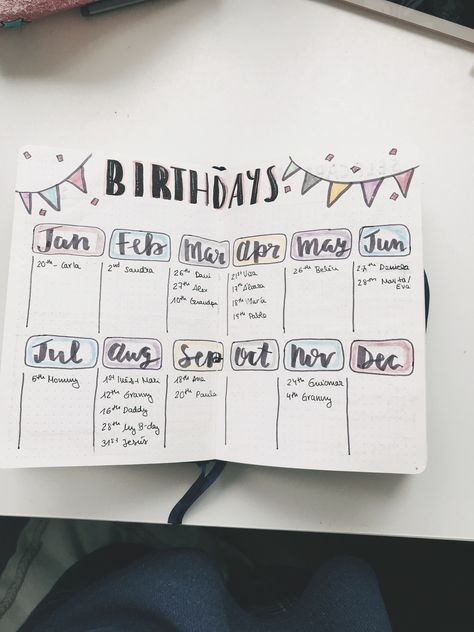 BIRTHDAYS
Jan
20th - Carla
Feb
2nd Sandra
Mar
26th Dani
27th Alex
10th Grandpa
Apr
21st
17th
18th María
19th Pablo
May
26th Belén
Jun
27th Daniela
28th Marta/
Eva
Jul
5th Mommy
Aug
1st Inés + Mari
12th Granny
16th Daddy
28th my B-day
31st Jesús
Sep
18th Ana
20th Paula
Oct
Nov
24th Guiomar
4th Granny
Dec